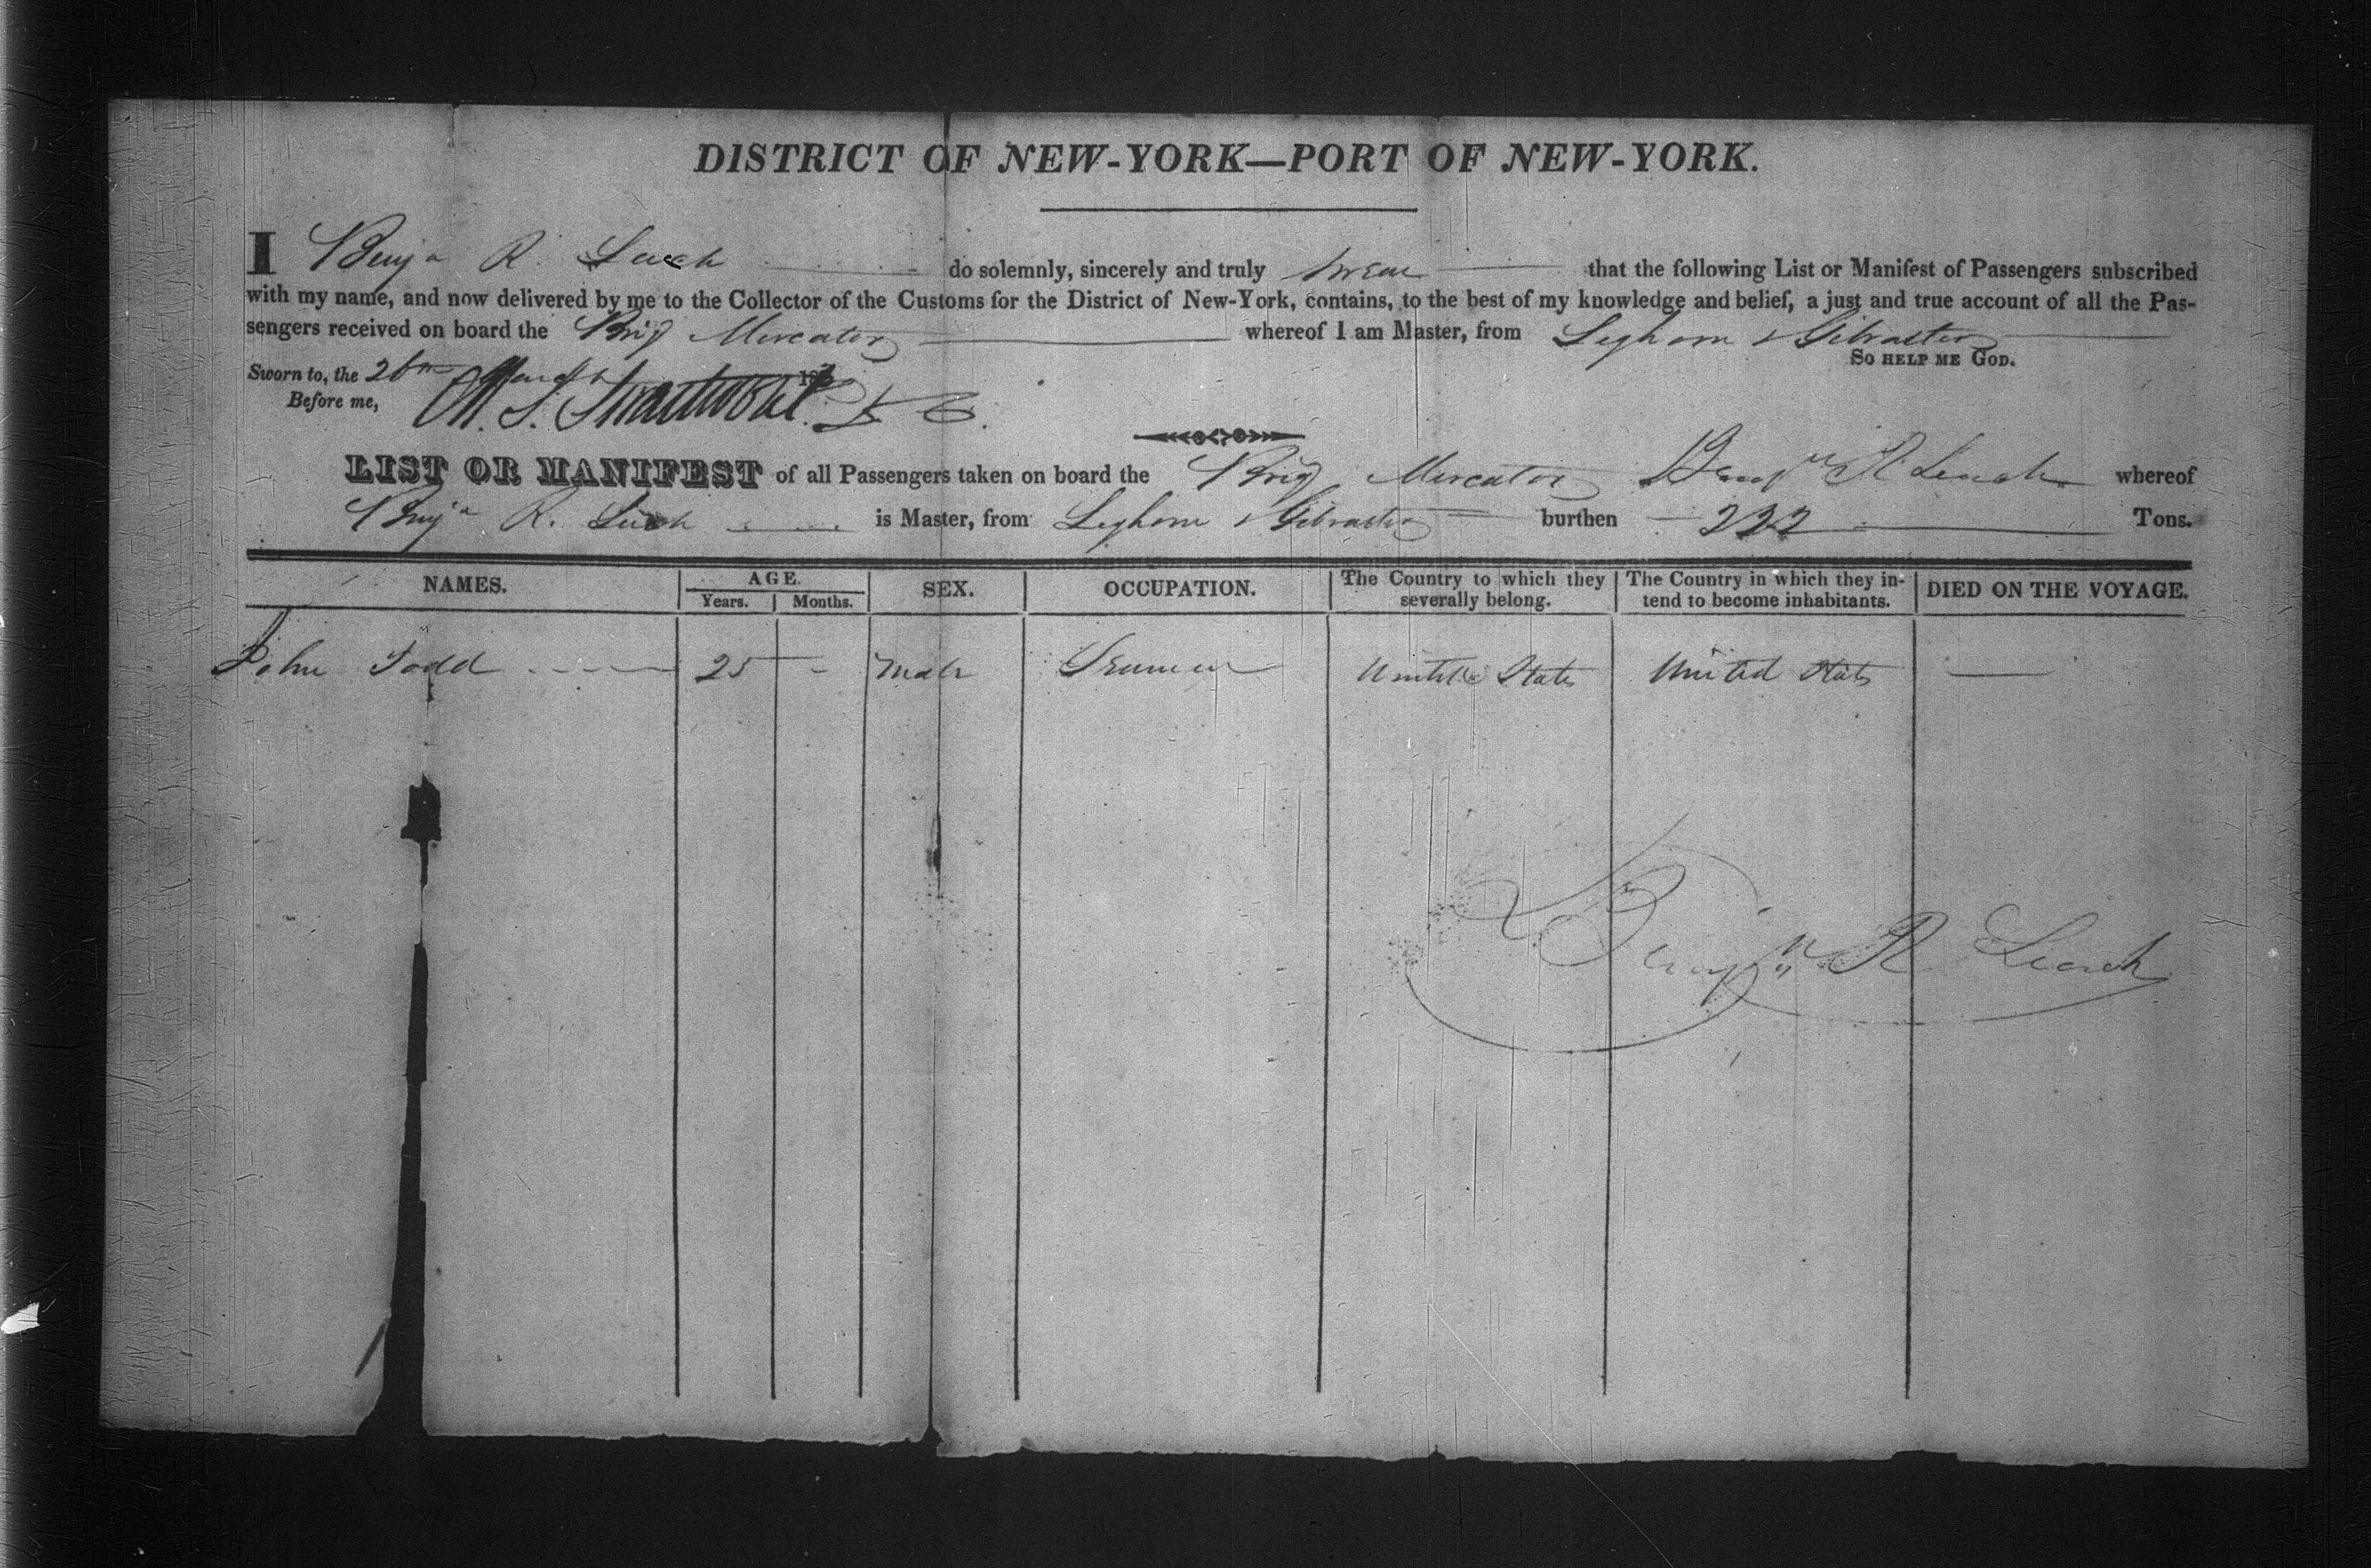 DISTRICT OF NEW-YORK—PORT OF NEW-YORK.
I Benjn R. Leach do solemnly, sincerely and truly swear that the following List or Manifest of Passengers subscribed
with my name, and now delivered by me to the Collector of the Customs for the District of New-York, contains, to the best of my knowledge and belief, a just and true account of all the Pas-
sengers received on board the Brig Mercator whereof I am Master, from Leghorn & Gibralter
So help me God.
Sworn to, the 26th March 183
Before me, M. S. Swartwout D C.
LIST OR MANIFEST of all Passengers taken on board the Brig Mercator Benjn R Leach whereof
Benjn R. Leach is Master, from Leghorn & Gibralter burthen 222 Tons.
NAMES. AGE. Years. Months. SEX. OCCUPATION. The Country to which they severally belong. The Country in which they in- tend to become inhabitants. DIED ON THE VOYAGE.
John Todd 25 - Male United States United States —
Benjn R Leach